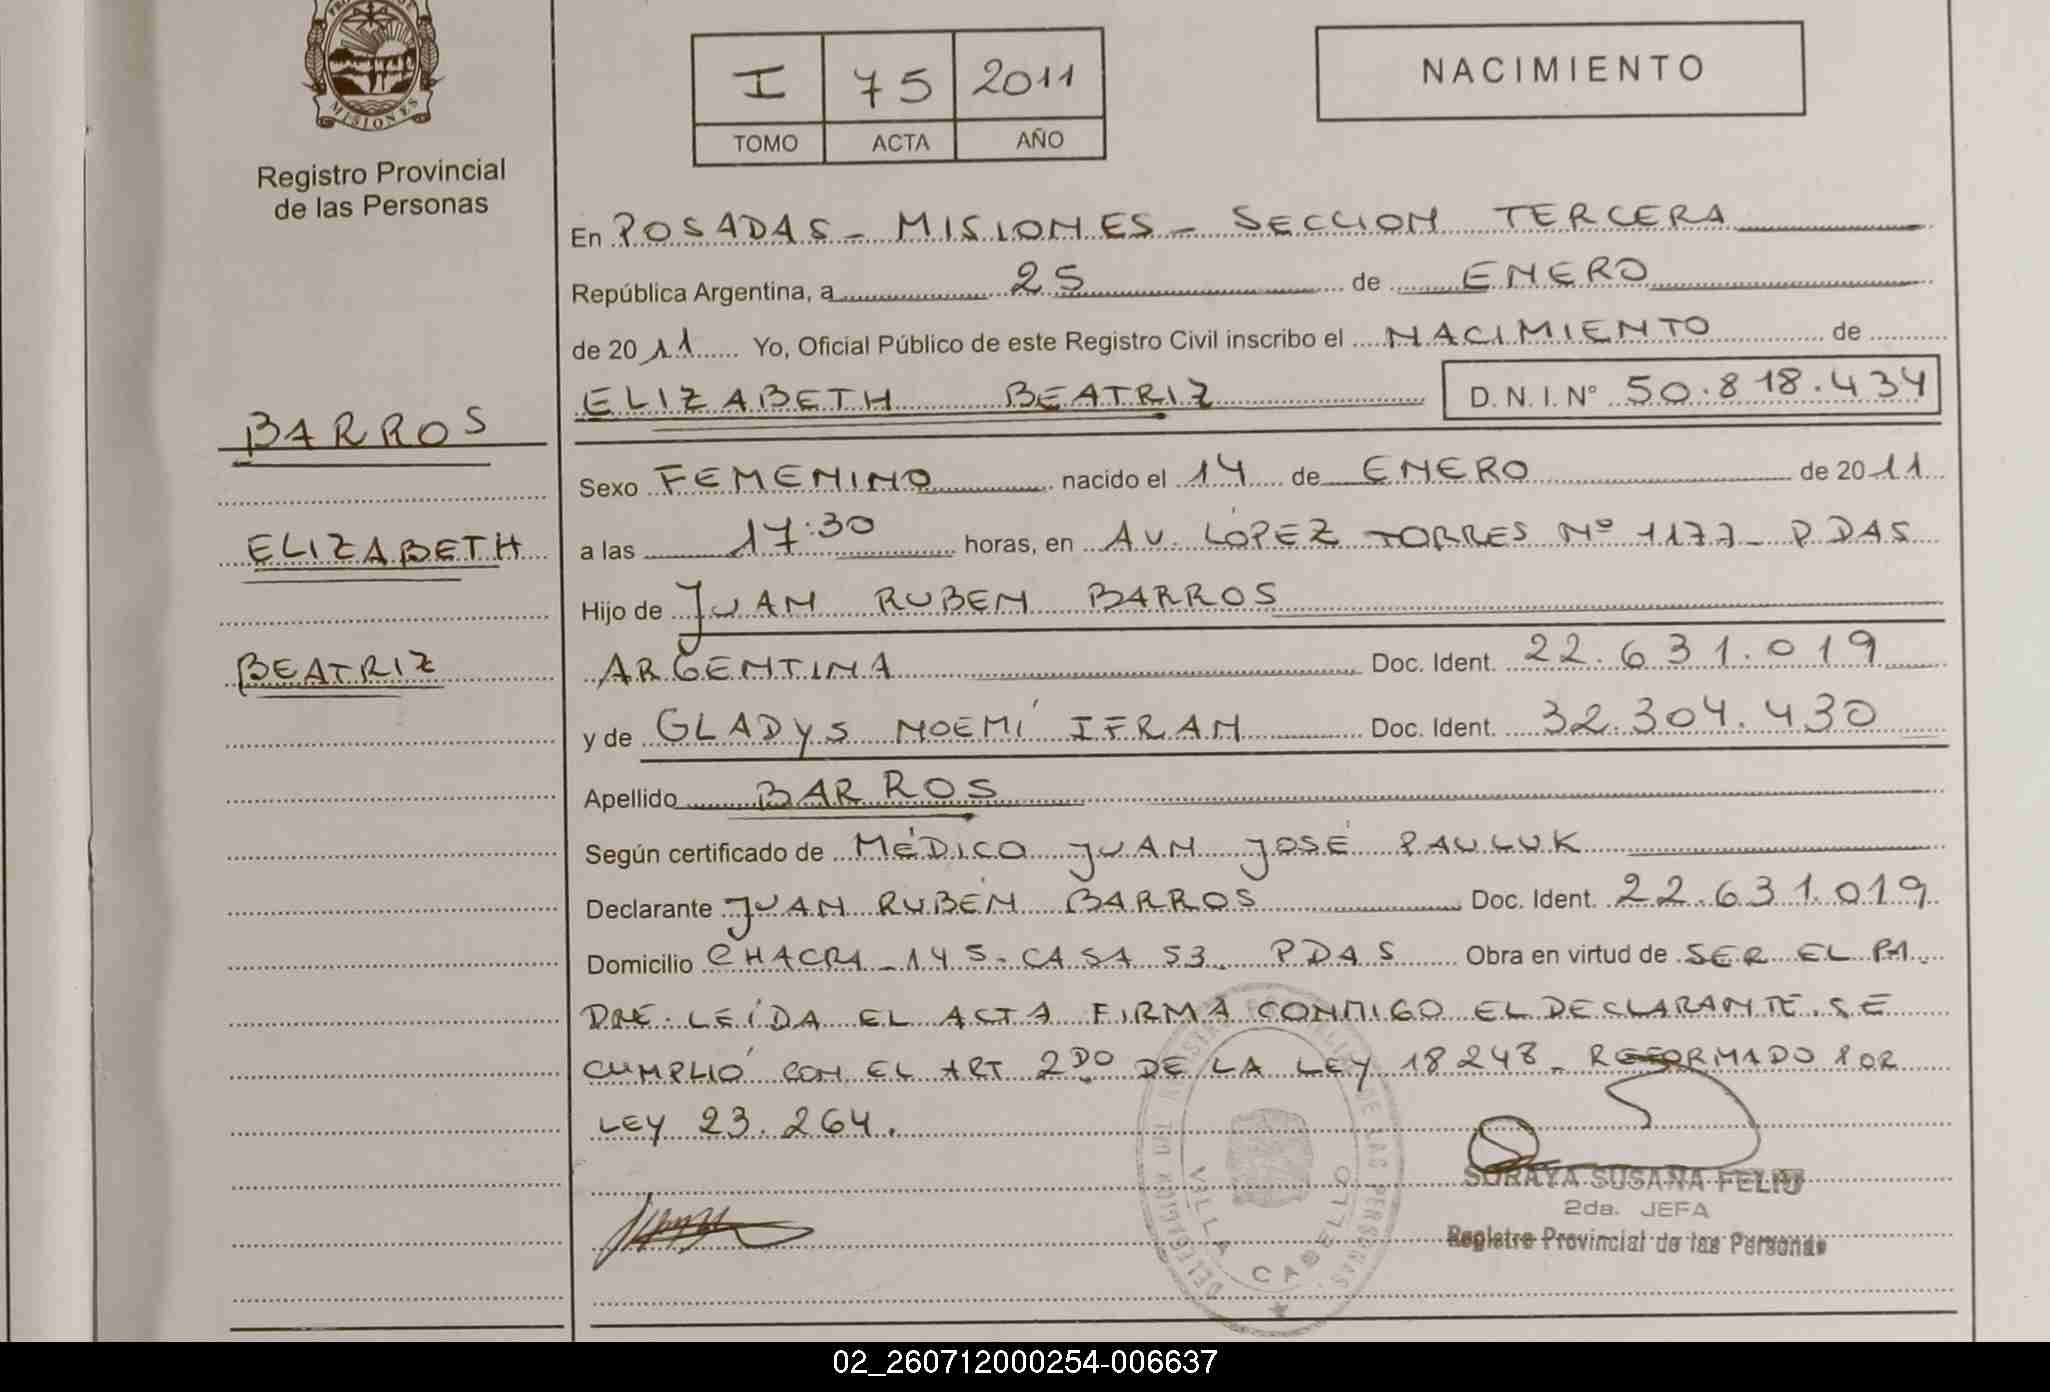 MISIONES
Registro Provincial
de las Personas
I 75 2011
TOMO ACTA AÑO
NACIMIENTO
En POSADAS - MISIONES - SECCION TERCERA
República Argentina, a 25 de ENERO
de 2011 Yo, Oficial Público de este Registro Civil inscribo el NACIMIENTO de
ELIZABETH BEATRIZ D. N. I. Nº 50.818.434
BARROS
ELIZABETH
BEATRIZ
Sexo FEMENINO nacido el 14 de ENERO de 2011
a las 17:30 horas, en AV. LÓPEZ TORRES Nº 1177 - PDAS
Hijo de JUAN RUBEN BARROS
ARGENTINA Doc. Ident. 22.631.019
y de GLADYS NOEMÍ IFRAN Doc. Ident. 32.304.430
Apellido BARROS
Según certificado de MÉDICO JUAN JOSÉ PAULUK
Declarante JUAN RUBÉN BARROS Doc. Ident. 22.631.019
Domicilio CHACRA - 145 - CASA 53. PDAS Obra en virtud de SER EL PA
DRE. LEÍDA EL ACTA FIRMA CONMIGO EL DECLARANTE. SE
CUMPLIÓ CON EL ART 2DO DE LA LEY 18248 - REFORMADO POR
LEY 23.264.
VILLA CABELLO
SORAYA SUSANA FELIU
2da. JEFA
Registro Provincial de las Personas
02_260712000254-006637